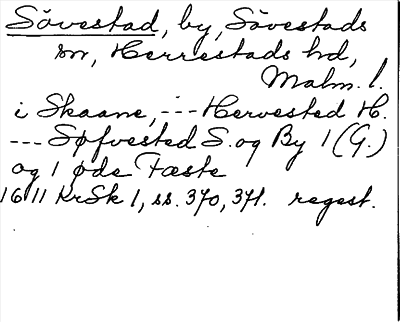 Sövestad, by, Sövestads
sn, Herrestads hd,
Malm. l.
i Skaane, --- Herrested H.
--- Søfvested S. og By 1 (G.)
og 1 øde Fæste
1611 KrSk 1, ss. 370, 371. regest.